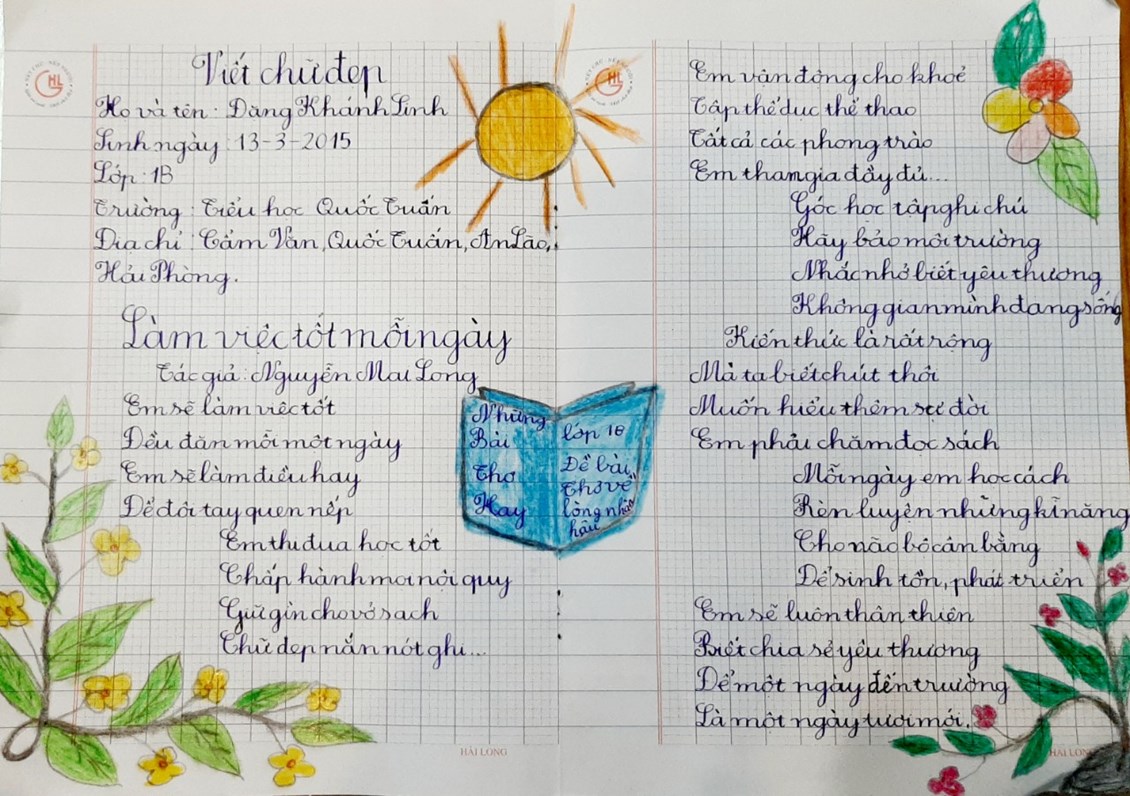 Viết chữ đẹp
Họ và tên : Đặng Khánh Linh
Sinh ngày : 13-3-2015
Lớp : 1B
Trường : Tiểu học Quốc Tuấn
Địa chỉ : Cẩm Văn, Quốc Tuấn, An Lão,
Hải Phòng.
Làm việc tốt mỗi ngày
Tác giả : Nguyễn Mai Long
Em sẽ làm việc tốt
Đều đặn mỗi một ngày
Em sẽ làm điều hay
Để đôi tay quen nếp
Em thi đua học tốt
Chấp hành mọi nội quy
Giữ gìn cho vở sạch
Chữ đẹp nắn nót ghi...
Những
Bài
Thơ
Hay
lớp 1B
Đề bài
Thơ về
lòng nhân
hậu
Em vận động cho khoẻ
Tập thể dục thể thao
Tất cả các phong trào
Em tham gia đầy đủ...
Góc học tập ghi chú
Hãy bảo môi trường
Nhắc nhở biết yêu thương
Không gian mình đang sống
Kiến thức là rất rộng
Mà ta biết chút thôi
Muốn hiểu thêm sự đời
Em phải chăm đọc sách
Mỗi ngày em học cách
Rèn luyện những kĩ năng
Cho não bộ cân bằng
Để sinh tồn, phát triển
Em sẽ luôn thân thiện
Biết chia sẻ yêu thương
Để một ngày đến trường
Là một ngày tươi mới.
HẢI LONG
HẢI LONG